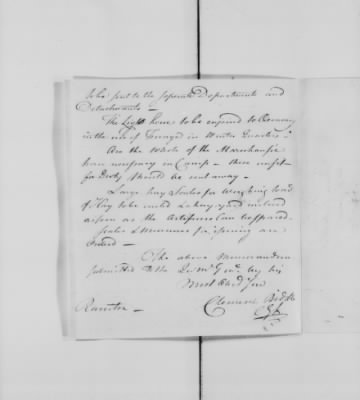 to be sent to the seperate Departments and
Detachments —
The Light Horse to be enjoined to Oeconomy
in the use of Forage in Winter Quarters —
Are the whole of the
necessary in Camp — those unfit
for Duty should be sent away —
Large Hay Scales for weighing load
of Hay to be erected
as soon as the Artificers can be spared.
Scales & Measures for issuing are
—
The above Memorandum
submitted to the Qr Mr Genl by his
Most Obed Serv
Clement Biddle
Raritan —